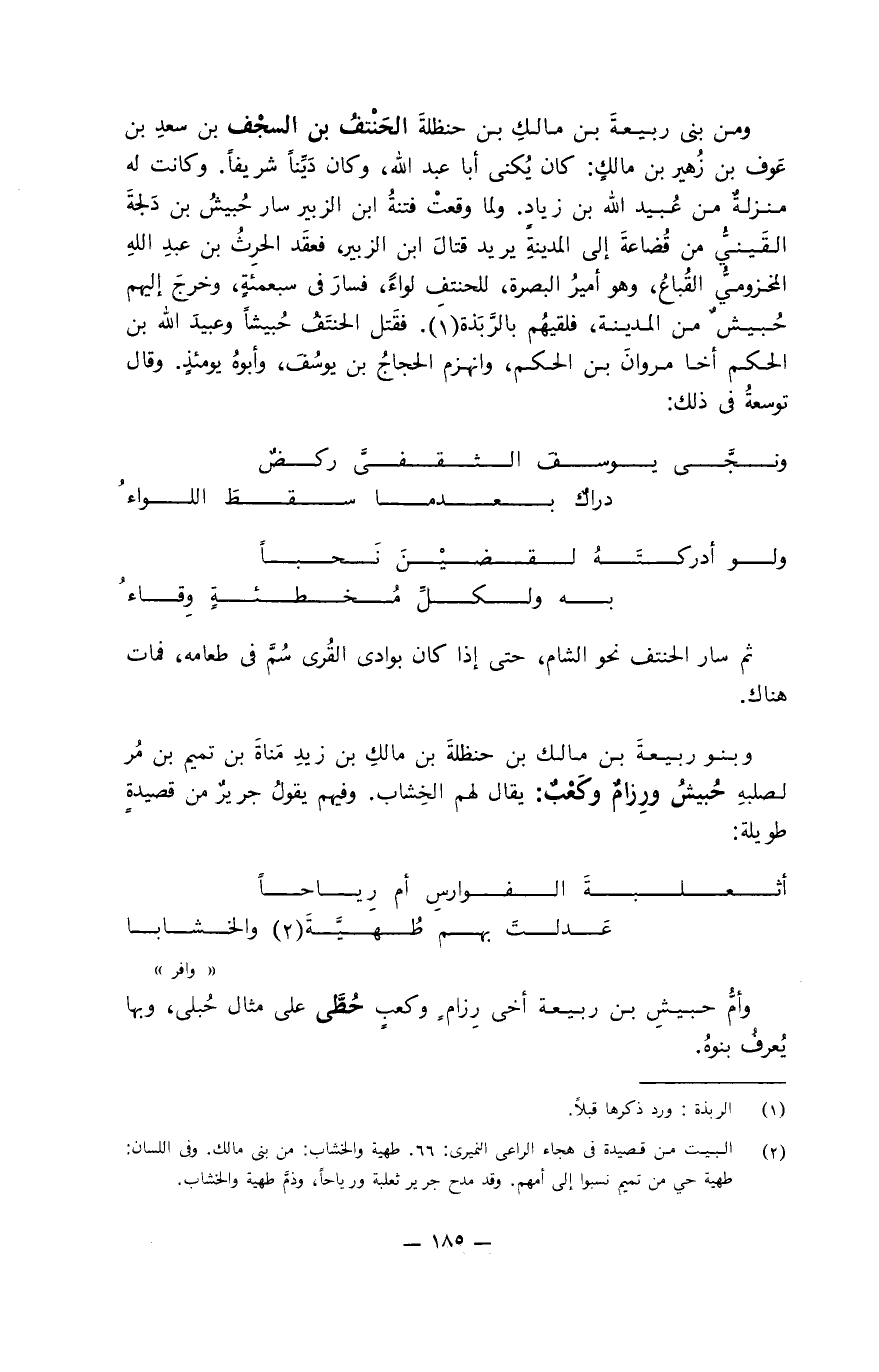 ومن بنى ربيعةَ بن مالكِ بن حنظلةَ الحَنْتفُ بن السجْف بن سعدِ بن
عَوف بن زُهير بن مالكٍ: كان يُكنى أبا عبد الله، وكان دَيِّناً شريفاً. وكانت له
منزلةٌ من عُبيد الله بن زيادٍ. ولما وقعتْ فتنةُ ابن الزبير سار حُبيشُ بن دَلجةَ
القَينيُّ من قُضاعةَ إلى المدينةِ يريد قتالَ ابن الزبير، فعقَد الحرثُ بن عبدِ اللهِ
المخزوميُّ القُباعُ، وهو أميرُ البصرة، للحنتفِ لواءً، فسارَ فى سبعمئةٍ، وخرجَ إليهم
حُبيشٌ من المدينة، فلقيهُم بالرَّبَذة(١). فقَتل الحنتَفُ حُبيشاً وعبيدَ الله بن
الحكم أخا مروانَ بن الحكم، وانهزم الحجاجُ بن يوسُفَ، وأبوهُ يومئذٍ. وقال
توسعةُ فى ذلك:
ونجَّى يوسفَ الثقفىَّ ركضٌ
دراكٌ بعدما سقطَ اللواءُ
ولو أدركتَهُ لقضيْنَ نَحباً
به ولكلِّ مُخطئةٍ وِقاءُ
ثم سار الحنتف نحو الشام، حتى إذا كان بوادى القُرى سُمَّ فى طعامه، فمات
هناك.
وبنو ربيعةَ بن مالك بن حنظلةَ بن مالكِ بن زيدِ مَناةَ بن تميم بن مُر
لصلبهِ حُبيشُ ورِزامٌ وكَعْبٌ: يقال لهم الخِشاب. وفيهم يقولُ جريرٌ من قصيدةٍ
طويلة:
أثعلبةَ الفوارسِ أم رِياحاً
عَدلتَ بهم طُهيَّةَ(٢) والخشابا
« وافر »
وأمُّ حبيشِ بن ربيعة أخى رِزامٍ وكعبٍ حُطَّى على مثال حُبلى، وبها
يُعرفُ بنوهُ.
(١) الربذة : ورد ذكرها قبلاً.
(٢) البيت من قصيدة فى هجاء الراعى النميرى: ٦٦. طهية والخشاب: من بنى مالك. وفى اللسان:
طهية حي من تميم نسبوا إلى أمهم. وقد مدح جرير ثعلبة ورياحاً، وذمَّ طهية والخشاب.
— ١٨٥ —